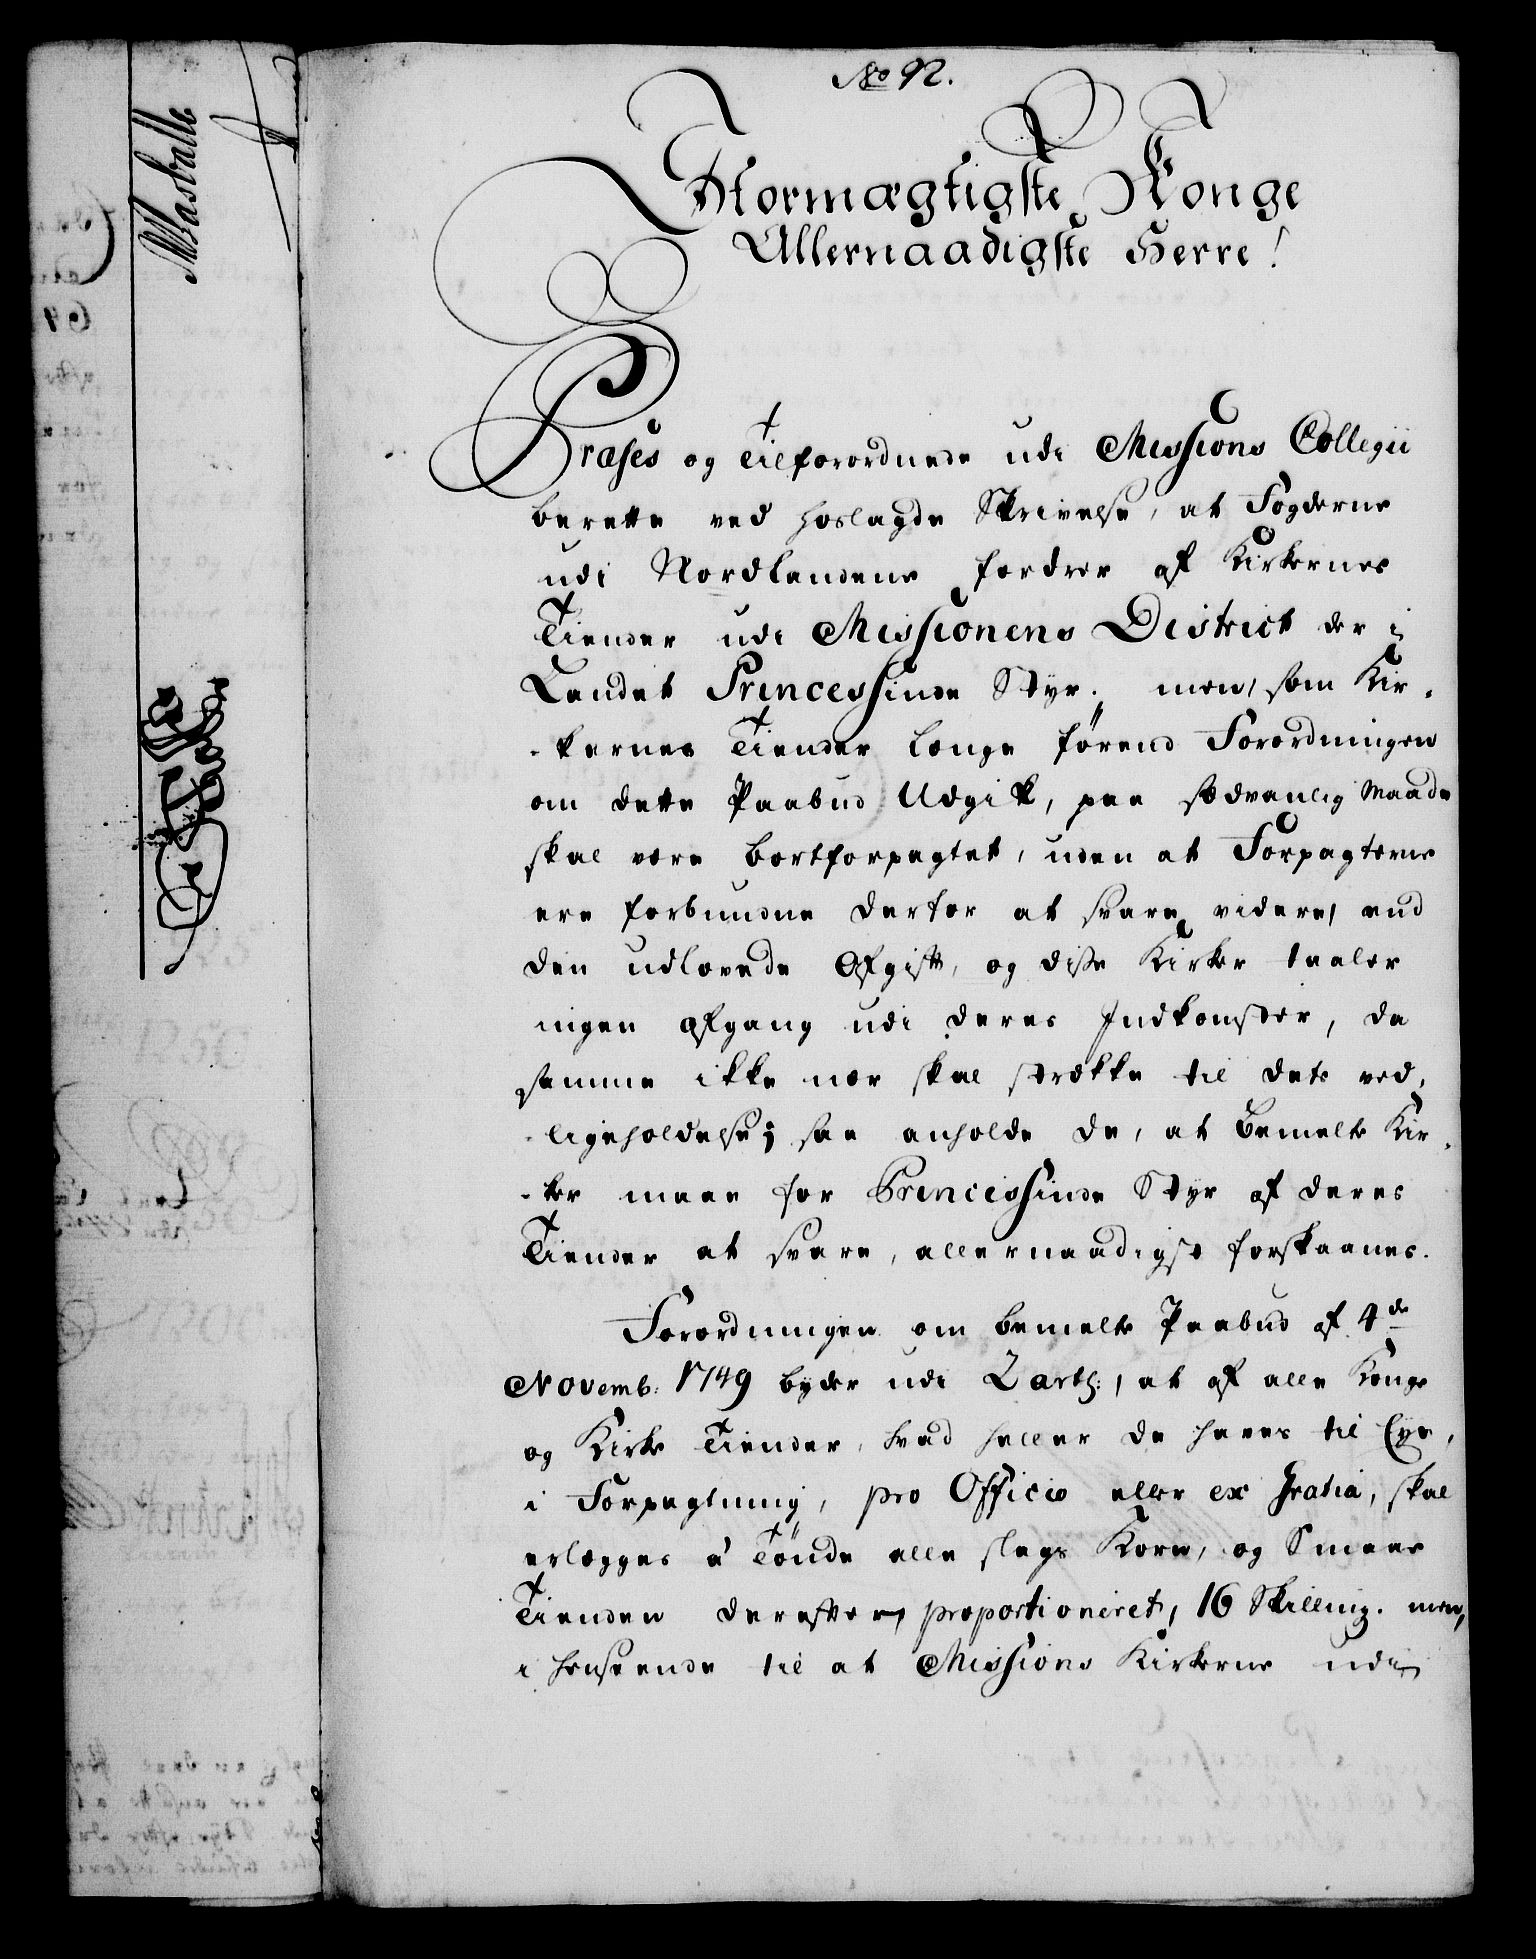 No 92.
Stormægtigste Konge
Allernaadigste Herre!
Præses og Tilforordnede udi Missions Collegii
berette ved hoslagde Skrivelse, at Fogderne
udi Nordlandene fordrer af Kirkernes
Tiender udi Missionens District der i
Landet Princessinde Styr; men, som Kir-
-kernes Tiender længe förend Forordningen
om dette Paabud Udgik, paa sædvanlig Maade
skal være bortforpagtet, uden at Forpagterne
ere forbundne derfor at svare videre, end
den udlovede Afgift, og disse Kirker taaler
ingen afgang udi deres Indkomster, da
samme ikke nær skal strække til dets ved-
-ligeholdelse; saa anholde de, at bemelte Kir-
-ker maae for Princessinde Styr af deres
Tiender at svare, allernaadigst forskaanes.
Forordningen om bemelte Paabud af 4de
Novemb: 1749 byder udi 2 art:, at af alle Konge
og Kirke Tiender, hvad heller de haves til Eye,
i Forpagtning, pro Officio eller ex Gratia, skal
erlægges à Tönde alle slags Korn, og Smaae
Tienden derefter proportioneret, 16 Skilling. men,
i henseende til at Missions Kirkerne udi